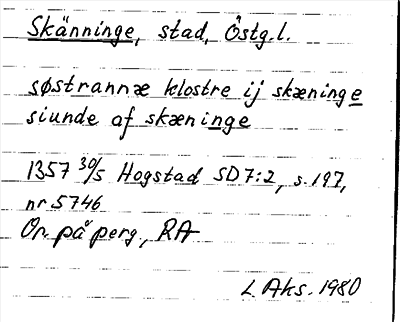 Skänninge, stad, Östg.l.
søstrannæ klostre ij skæninge
siunde af skæninge
1357 30/5 Hogstad SD 7:2, s. 197,
nr 5746
Or. på perg, RA
L Aks. 1980